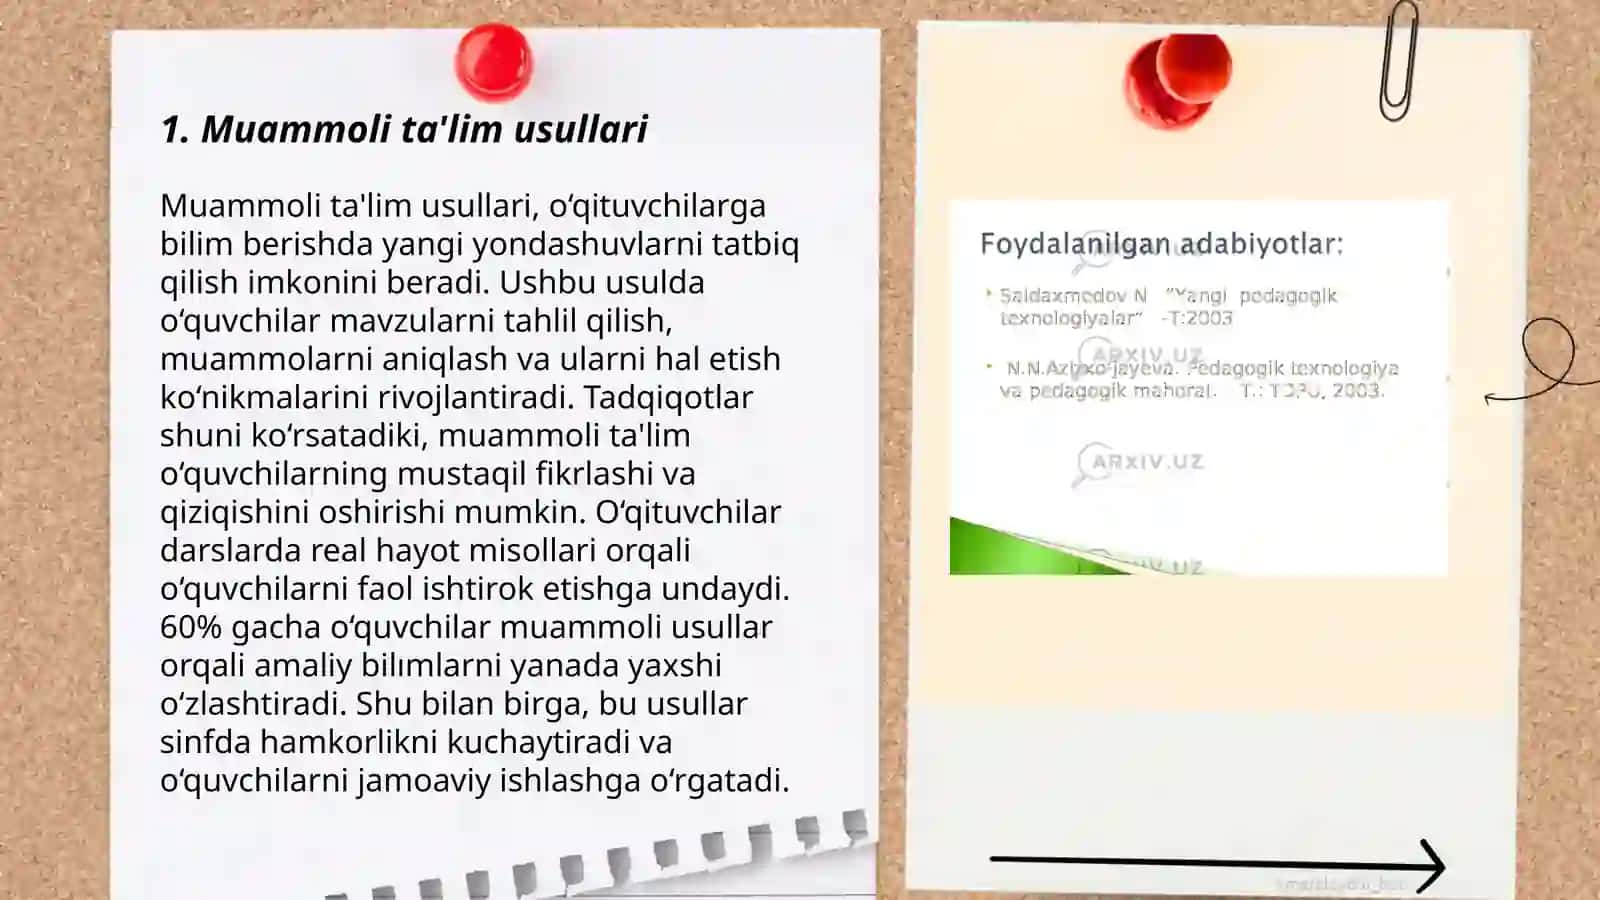 1. Muammoli ta'lim usullari
Muammoli ta'lim usullari, o‘qituvchilarga
bilim berishda yangi yondashuvlarni tatbiq
qilish imkonini beradi. Ushbu usulda
o‘quvchilar mavzularni tahlil qilish,
muammolarni aniqlash va ularni hal etish
ko‘nikmalarini rivojlantiradi. Tadqiqotlar
shuni ko‘rsatadiki, muammoli ta'lim
o‘quvchilarning mustaqil fikrlashi va
qiziqishini oshirishi mumkin. O‘qituvchilar
darslarda real hayot misollari orqali
o‘quvchilarni faol ishtirok etishga undaydi.
60% gacha o‘quvchilar muammoli usullar
orqali amaliy bilımlarni yanada yaxshi
o‘zlashtiradi. Shu bilan birga, bu usullar
sinfda hamkorlikni kuchaytiradi va
o‘quvchilarni jamoaviy ishlashga o‘rgatadi.
Foydalanilgan adabiyotlar:
Saidaxmedov N "Yangi pedagogik
texnologiyalar" -T:2003
ARXIV.UZ
N.N.Azizxo‘jayeva. Pedagogik texnologiya
va pedagogik mahorat. T.: TDPU, 2003.
ARXIV.UZ